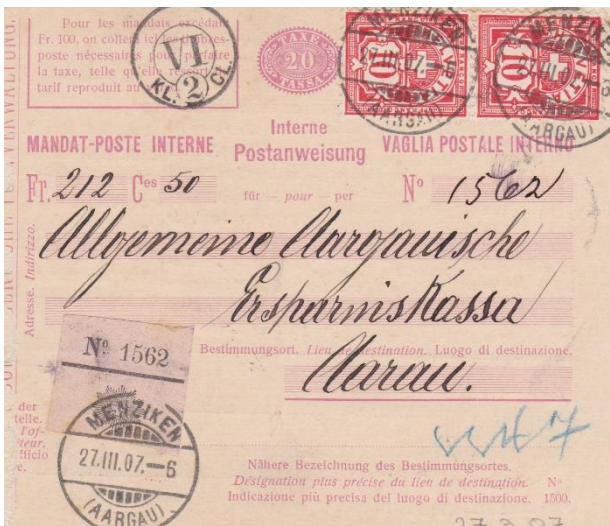 Pour les mandats excédant
Fr. 100, on collera ici les timbres-
poste nécessaires pour parfaire
la taxe, telle qu'elle ressort du
tarif reproduit au
VI
KL. 2 CL.
TAXE
20
TASSA
MENZIKEN
27.III.07.-
(AARGAU)
10
MENZIKEN
27.III.07.-6
(AARGAU)
10
MANDAT-POSTE INTERNE
Interne
Postanweisung
VAGLIA POSTALE INTERNO
Fr. 212 Ces 50
für — pour — per
No 1562
Adresse. Indirizzo.
Allgemeine Aargauische
Ersparniskassa
No 1562
Bestimmungsort. Lieu de destination. Luogo di destinazione.
Aarau.
der
telle.
l'of-
teur.
fficio
e.
MENZIKEN
27.III.07.-6
(AARGAU)
Nähere Bezeichnung des Bestimmungsortes.
Désignation plus précise du lieu de destination. No
Indicazione più precisa del luogo di destinazione. 1500.
27.3.07